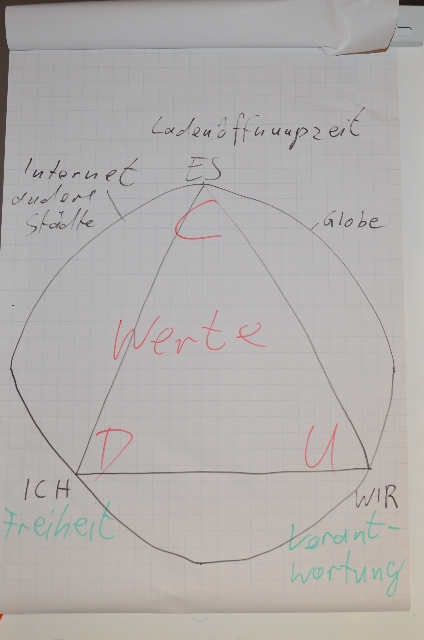 Ladenöffnungszeit
ES
Internet
andere
Städte
Globe
C
Werte
D
U
ICH
WIR
Freiheit
Verant-
wortung